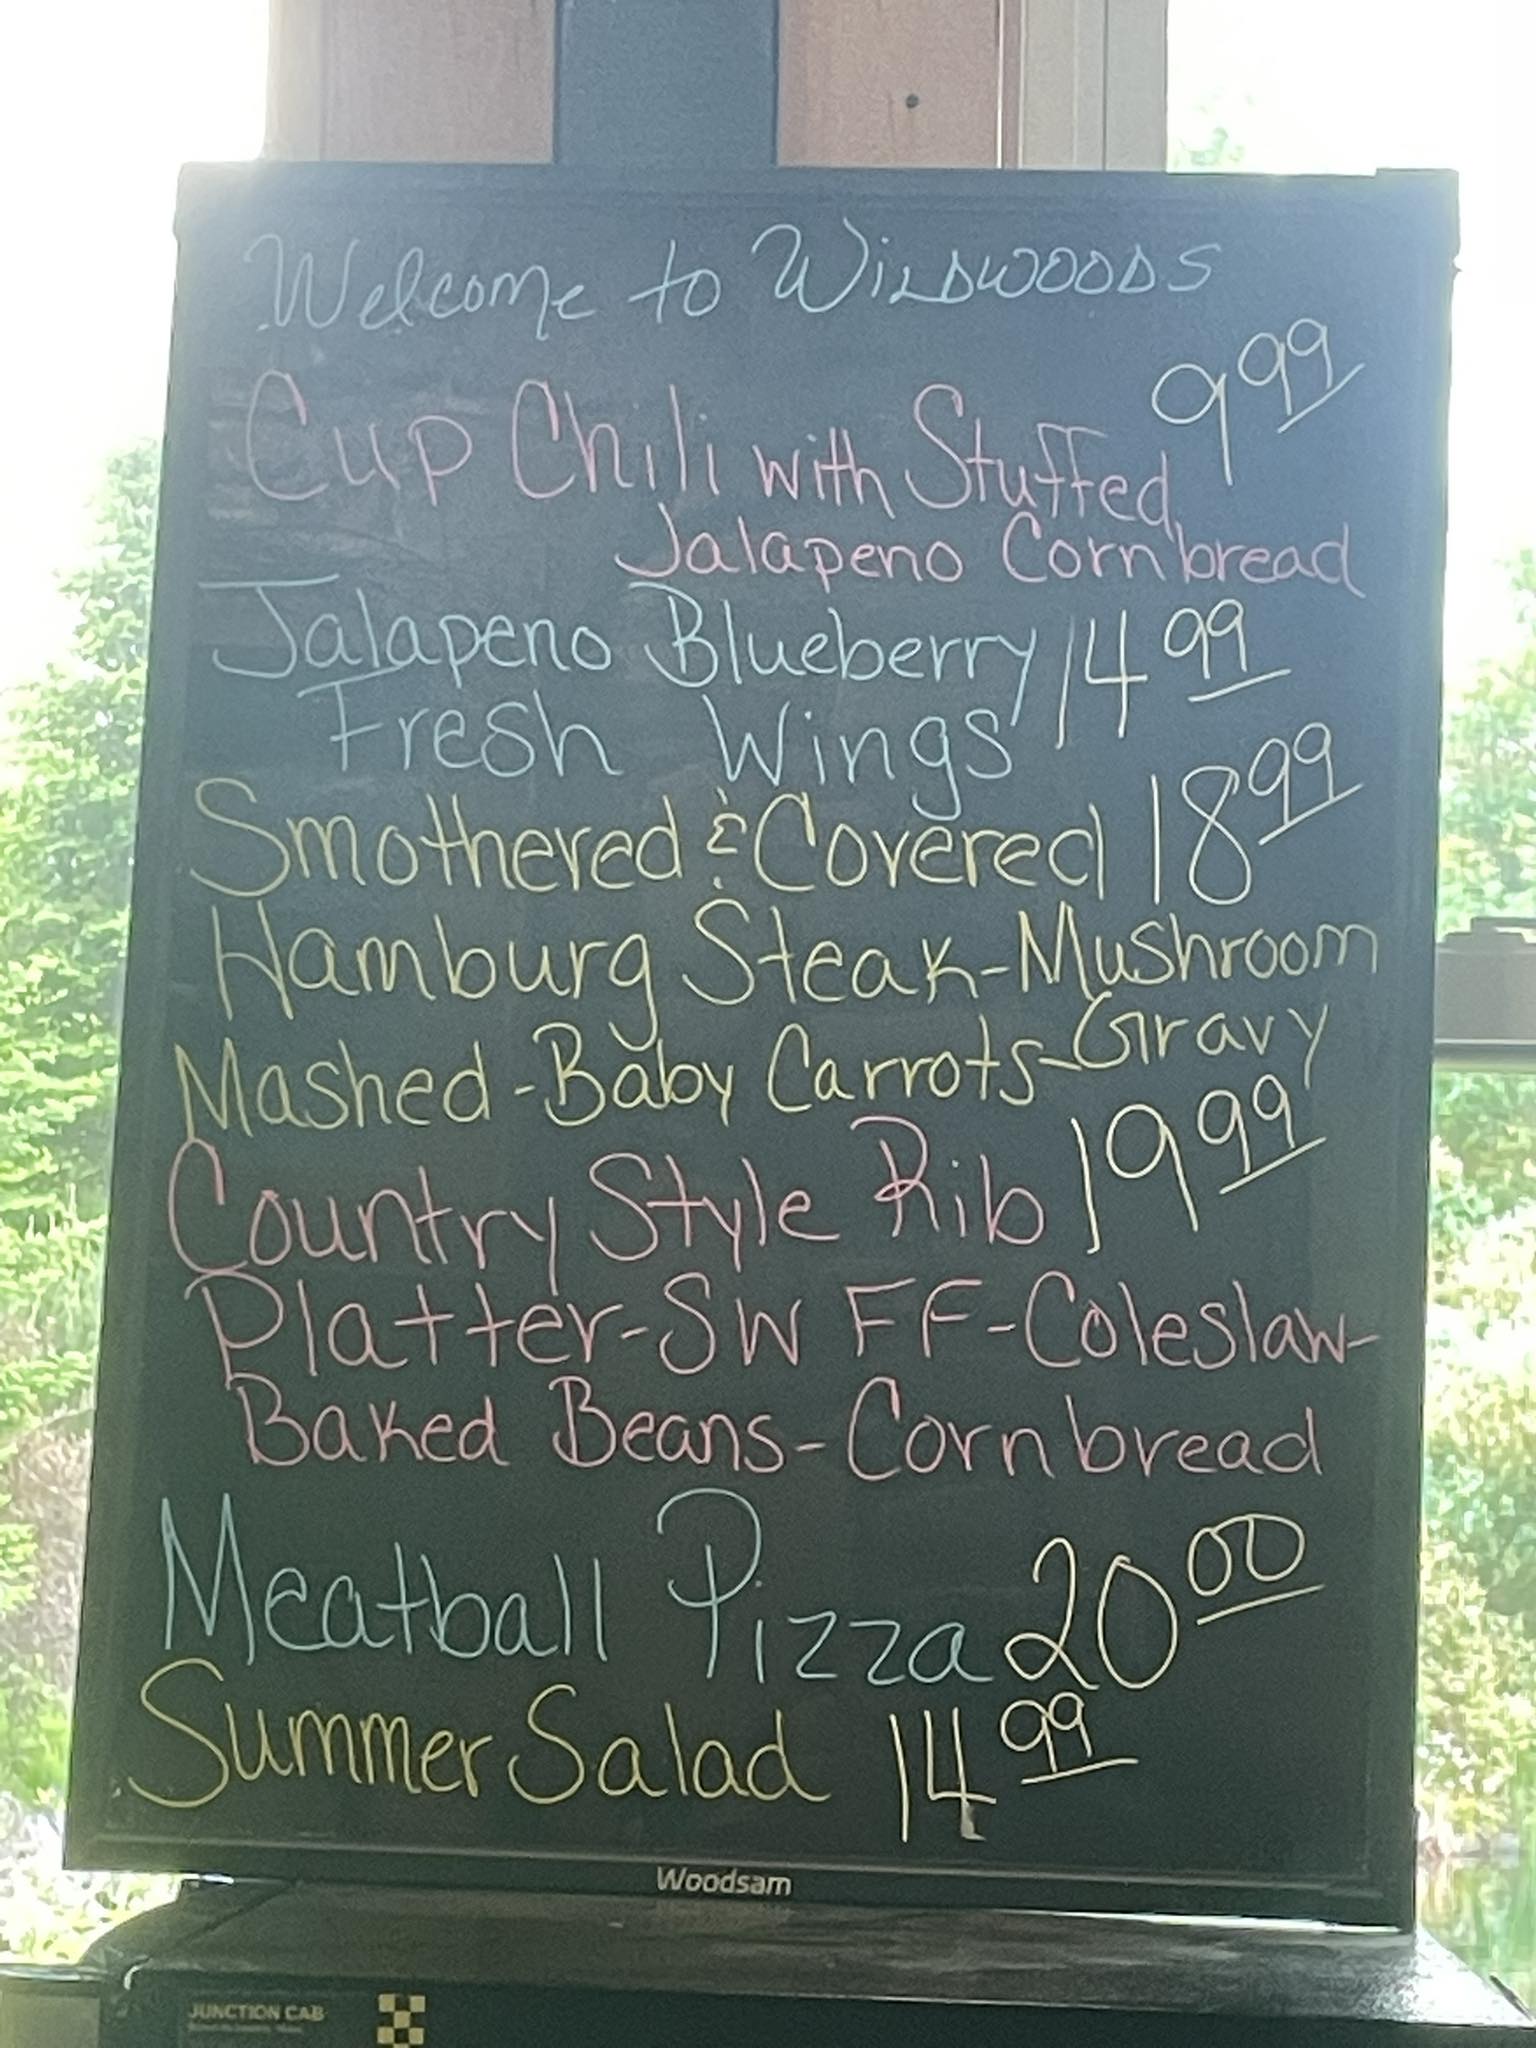 Welcome to Wildwoods
Cup Chili with Stuffed 9 99
Jalapeno Cornbread
Jalapeno Blueberry 14 99
Fresh Wings
Smothered & Covered 18 99
Hamburg Steak-Mushroom
Gravy
Mashed-Baby Carrots-
Country Style Rib 19 99
Platter-SW FF-Coleslaw-
Baked Beans-Cornbread
Meatball Pizza 20 00
Summer Salad 14 99
Woodsam
JUNCTION CAB